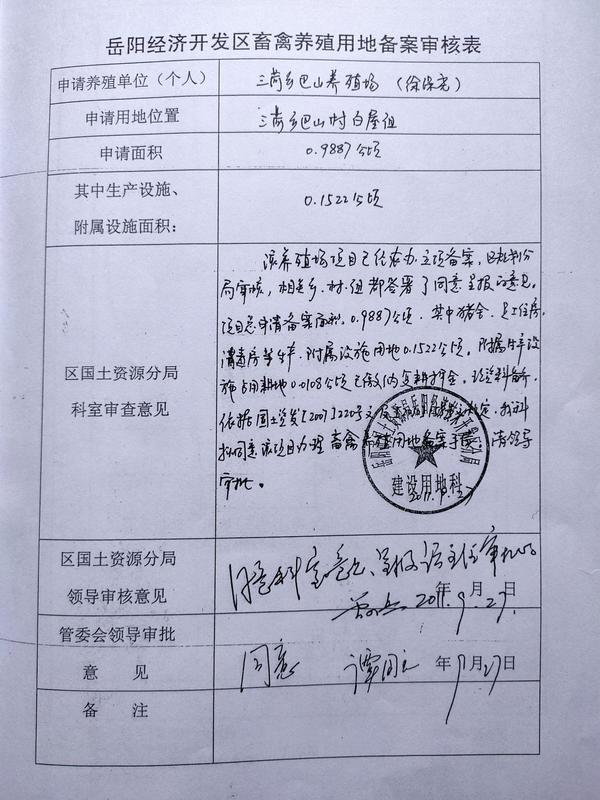 岳阳经济开发区畜禽养殖用地备案审核表
申请养殖单位（个人） 三荷乡巴山养殖场（徐保尧）
申请用地位置 三荷乡巴山村白屋组
申请面积 0.9887公顷
其中生产设施、
附属设施面积： 0.1522公顷
区国土资源分局
科室审查意见
该养殖场项目已经农办立项备案，区规划分
局审核，相关乡、村、组都签署了同意呈报的意见。
项目总申请备案面积0.9887公顷．其中猪舍、员工住房、
消毒房等生产、附属设施用地0.1522公顷。附属生产设
施占用耕地0.0108公顷已缴纳复耕押金。
依据国土资发[2007]220号文
拟同意该项目办理畜禽养殖用地备案手续。请领导
审批。
建设用地科
区国土资源分局
领导审核意见
同意科室意见、呈报 主任审批
2011年9月27日
管委会领导审批
意 见
同意 年9月27日
备 注